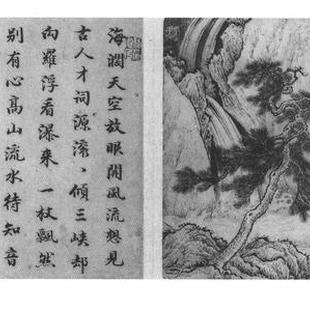 海闊天空放眼開風流想見
古人才詞源滚〻傾三峽却
向羅浮看瀑来一杖飄然
别有心高山流水待知音